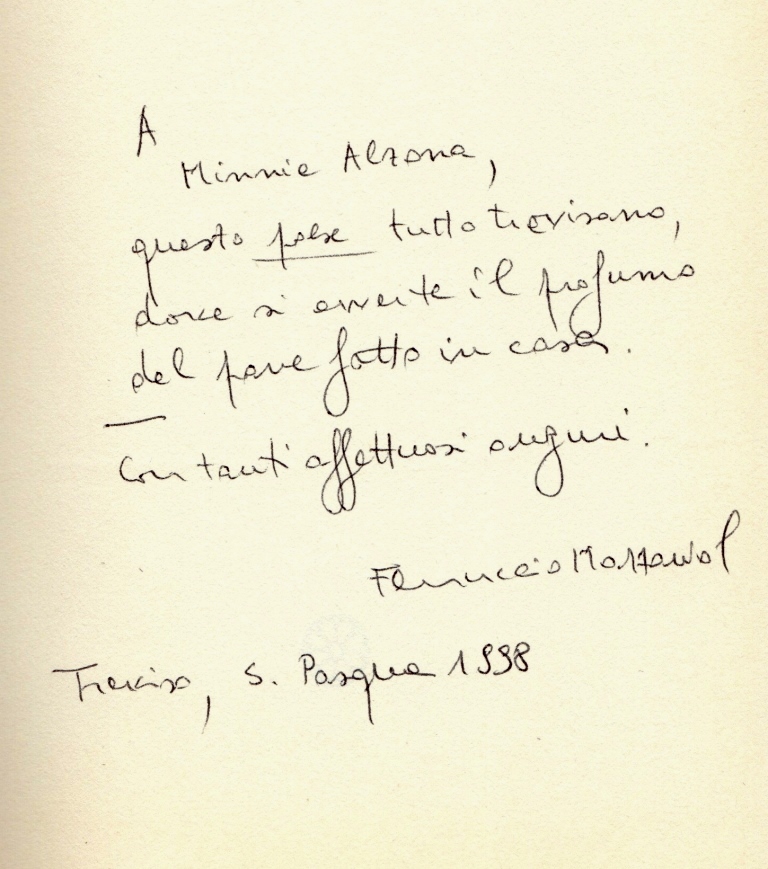 A
Minnie Alzona,
questo tutto trevisano,
dove si avverte il profumo
del pane fatto in casa.
Con tanti affettuosi auguri.
Ferruccio Mazzariol
Treviso, S. Pasqua 1998